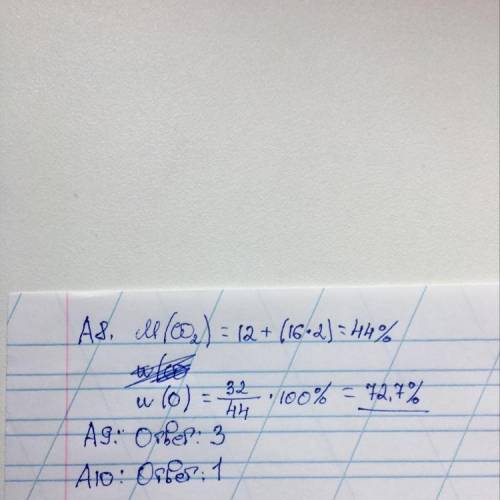 А8. M(CO₂) = 12 + (16·2) = 44%
w(O) = 32/44 · 100% = 72,7%
А9: Ответ: 3
А10: Ответ: 1